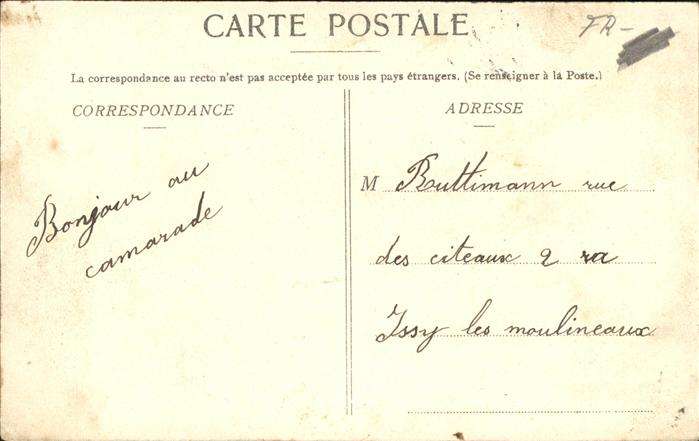 CARTE POSTALE
FR-
La correspondance au recto n'est pas acceptée par tous les pays étrangers. (Se renseigner à la Poste.)
CORRESPONDANCE
Bonjour au
camarade
ADRESSE
M Buttimann rue
des citeaux 2
Issy les moulineaux